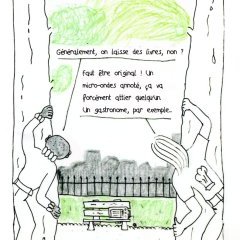 Généralement, on laisse des livres, non ?
Faut être original ! Un
micro-ondes annoté, ça va
forcément attier quelqu'un.
Un gastronome, par exemple.